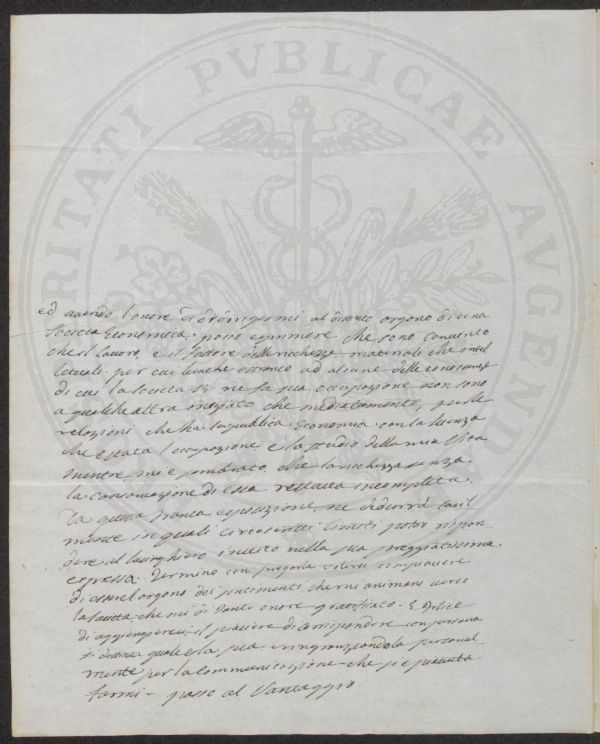 RITATI PVBLICAE AVGENDA
ed avendo l'onore di dirigermi al distinto organo di una
Società Economica, posso esprimere che sono convinto
che il lavoro, è il fattore delle richezze materiali che intel
lettuali: per cui benche estraneo ad alcune delle conoscenze
di cui la Società si ne fa sua occupazione non sono
a qualche altra iniziato che mediatamente, per le
relazioni che ha la publica Economia con la scienza
che è stata l'occupazione e lo studio della mia vita
mentre mi è sembrato, che la richezza senza
la conservazione di essa restava incompleta.
Da questa franca esposizione ne dedurrà facil
mente in quali circoscritti limiti potrò rispon
dere al lusinghiero invito nella sua preggiatissima
espressa. Termino con pregarla volersi compiacere
di essere l'organo dei sentimenti che mi animano verso
la Società che mi di tanto onore gratificato. E felice
di aggiungere il piacere di corrispondere con persona
sì distinta quale è la sua ringraziandola personal
mente per la communicazione che si è piaciuta
farmi - passo al Vantaggio